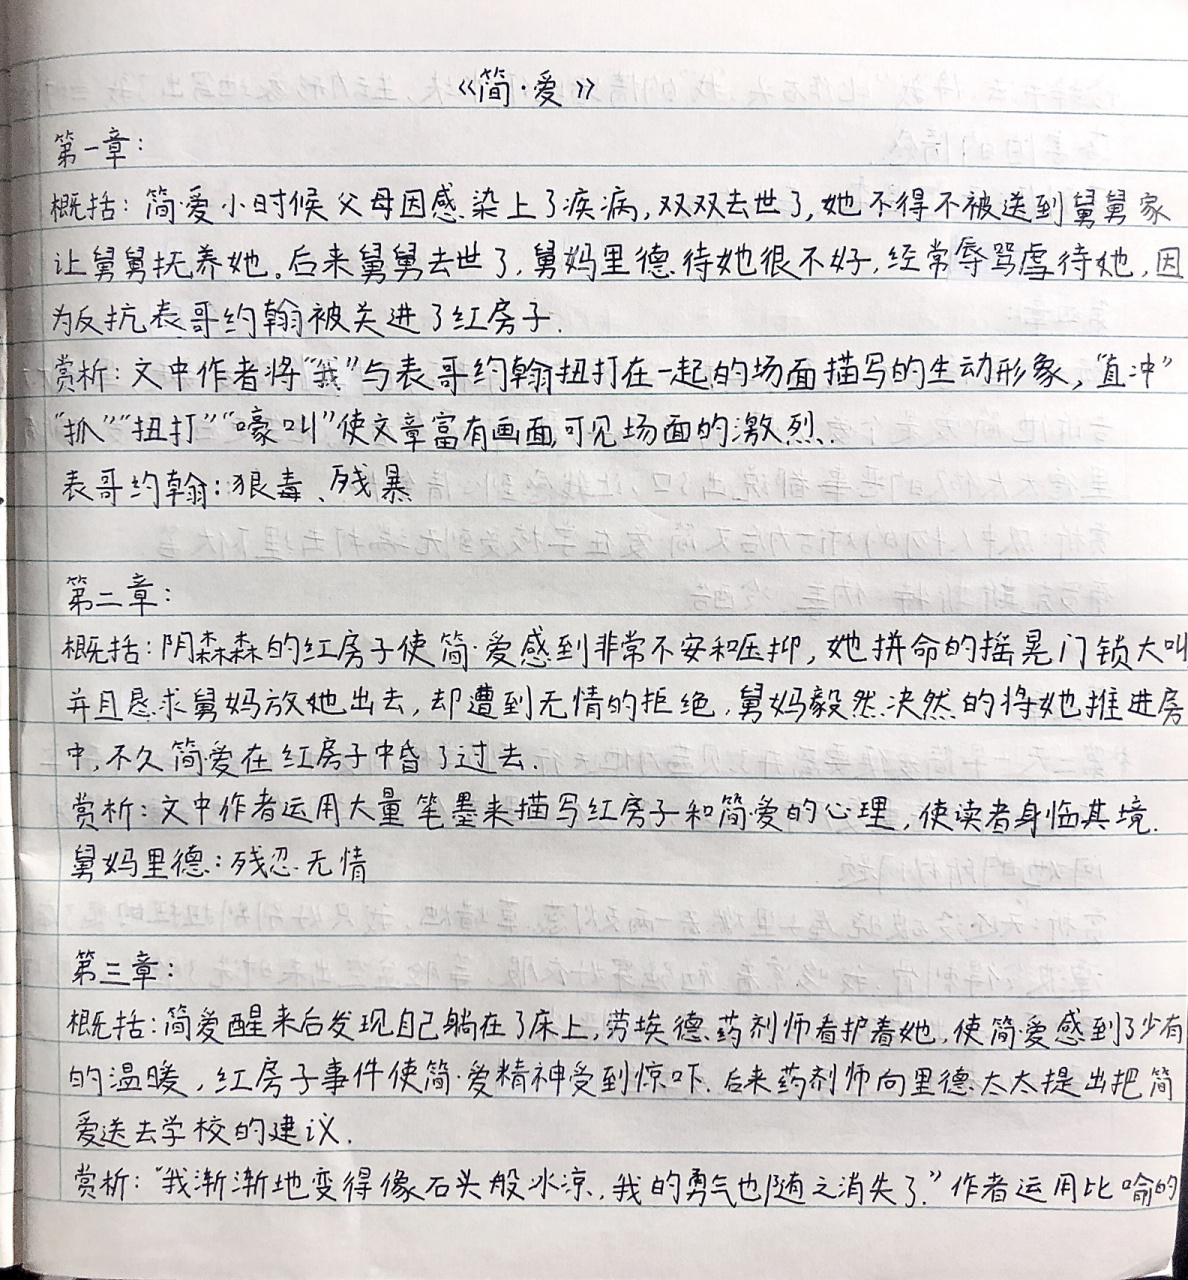 《简·爱》
第一章：
概括：简·爱小时候父母因感染上了疾病,双双去世了,她不得不被送到舅舅家
让舅舅抚养她。后来舅舅去世了,舅妈里德待她很不好,经常辱骂虐待她,因
为反抗表哥约翰被关进了红房子.
赏析：文中作者将“我”与表哥约翰扭打在一起的场面描写的生动形象,“直冲”
“抓”“扭打”“嚎叫”使文章富有画面,可见场面的激烈.
表哥约翰：狠毒、残暴
第二章：
概括：阴森森的红房子使简·爱感到非常不安和压抑,她拼命的摇晃门锁大叫
并且恳求舅妈放她出去,却遭到无情的拒绝,舅妈毅然决然的将她推进房
中,不久简爱在红房子中昏了过去.
赏析：文中作者运用大量笔墨来描写红房子和简爱的心理,使读者身临其境.
舅妈里德：残忍.无情
第三章：
概括：简爱醒来后发现自己躺在了床上,劳埃德药剂师看护着她,使简·爱感到了少有
的温暖,红房子事件使简·爱精神受到惊吓.后来药剂师向里德太太提出把简
爱送去学校的建议.
赏析：“我渐渐地变得像石头般冰凉,我的勇气也随之消失了.”作者运用比喻的